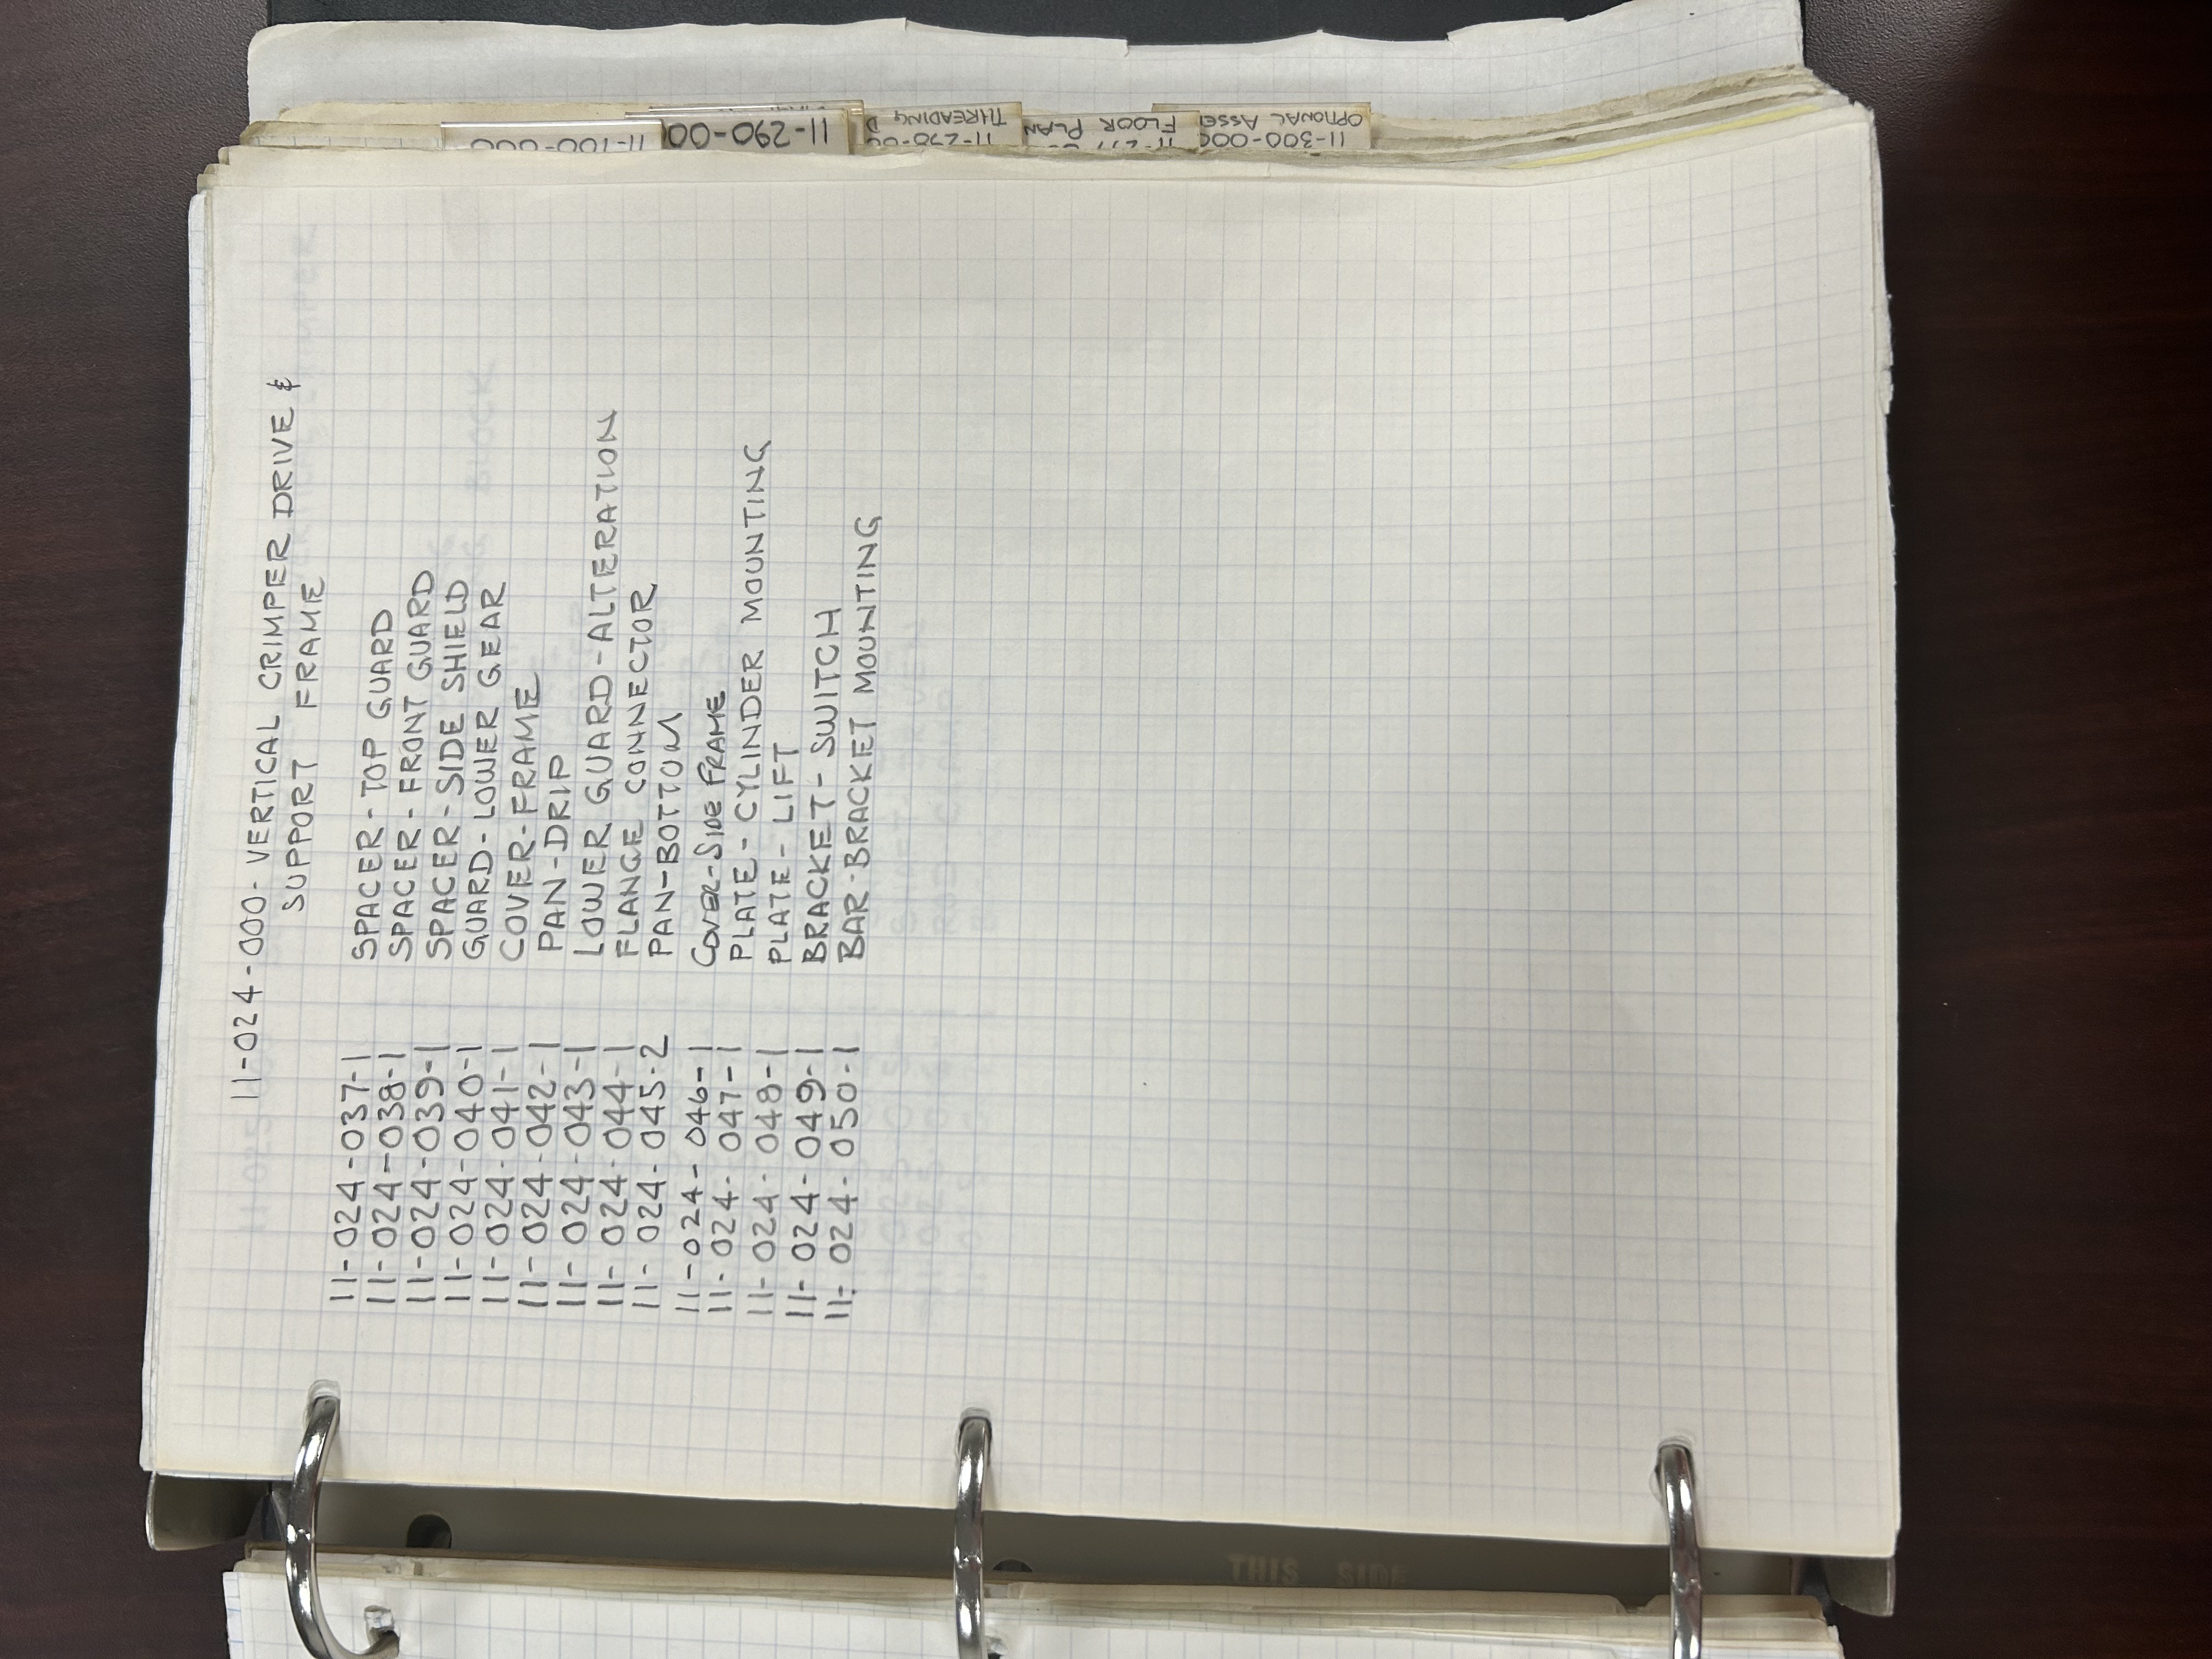 11-024-000- VERTICAL CRIMPER DRIVE &
SUPPORT FRAME
11-024-037-1 SPACER-TOP GUARD
11-024-038-1 SPACER-FRONT GUARD
11-024-039-1 SPACER-SIDE SHIELD
11-024-040-1 GUARD-LOWER GEAR
11-024-041-1 COVER-FRAME
11-024-042-1 PAN-DRIP
11-024-043-1 LOWER GUARD-ALTERATION
11-024-044-1 FLANGE CONNECTOR
11-024-045-2 PAN-BOTTOM
11-024-046-1 COVER-SIDE FRAME
11-024-047-1 PLATE-CYLINDER MOUNTING
11-024-048-1 PLATE-LIFT
11-024-049-1 BRACKET-SWITCH
11-024-050-1 BAR-BRACKET MOUNTING
11-100-000
11-290-00
11-270-0
THREADING D
FLOOR PLAN
11-300-000
OPTIONAL ASSE
THIS SIDE